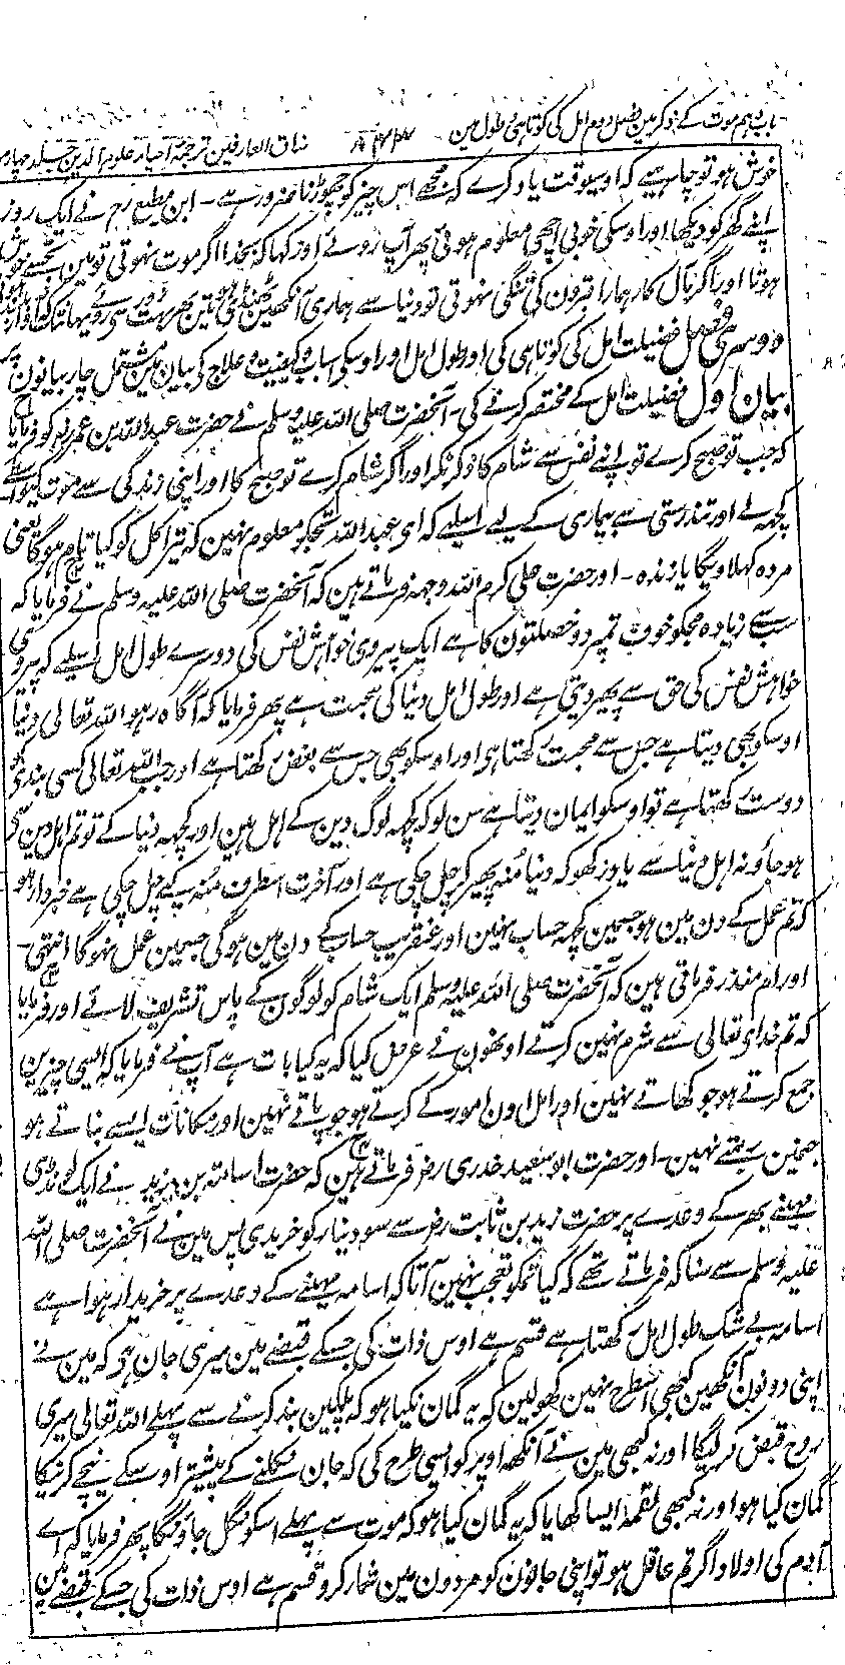 باب دہم موت کے ذکر مین فصل دوم امل کی کوتاہی و طول مین ۶۴۴ مذاق العارفین ترجمہ احیاء علوم الدین جلد چہارم
خوش ہو تو چاہیے کہ اوسیوقت یاد کرے کہ مجھے اس چیز کو چھوڑنا ضرور ہے۔ ابن مطیع رح نے ایک روز
اپنے گھر کو دیکھا اور اوسکی خوبی اچھی معلوم ہوئی پھر آپ روئے اور کہا کہ بخدا اگر موت نہوتی تو مین تجھسے خوش
ہوتا اور اگر مآل کار ہمارا قبرون کی تنگی نہوتی تو دنیا سے ہماری آنکھین ٹھنڈی ہوتین پھر بہت سے روئے یہانتک کہ آواز بلند ہوئی
دوسری فصل فضیلت امل کی کوتاہی کی اور طول امل اور اوسکی اسباب و کیفیت و علاج کی بیان مین مشتمل چار بیانون پر
بیان اول فضیلت امل کے مختصر کرنے کی۔ آنحضرت صلی اللہ علیہ وسلم نے حضرت عبد اللہ بن عمر رض کو فرمایا
کہ جب تو صبح کرے تو اپنے نفس سے شام کا ذکر نکر اور اگر شام کرے تو صبح کا اور اپنی زندگی سے موت کیواسطے
کچھ لے اور تندرستی سے بیماری کے لیے اسلیے کہ ای عبد اللہ تجکو معلوم نہین کہ تیرا کل کو کیا نام ہوگا یعنی
مردہ کہلاویگا یا زندہ۔ اور حضرت علی کرم اللہ وجہہ فرماتے ہین کہ آنحضرت صلی اللہ علیہ وسلم نے فرمایا کہ
سب سے زیادہ مجکو خوف تمپر دو خصلتون کا ہے ایک پیروی خواہش نفس کی دوسرے طول امل اسلیے کہ پیروی
خواہش نفس کی حق سے پھیر دیتی ہے اور طول امل دنیا کی محبت ہے پھر فرمایا کہ آگاہ رہو اللہ تعالی دنیا
اوسکو بھی دیتا ہے جس سے محبت رکھتا ہی اور اوسکو بھی جس سے بغض رکھتا ہے اور جب اللہ تعالی کسی بندی کو
دوست رکھتا ہے تو اوسکو ایمان دیتا ہے سن لو کہ کچھ لوگ دین کے اہل ہین اور کچھ دنیا کے تو تم اہل دین
ہو جاؤ نہ اہل دنیا سے یاد رکھو کہ دنیا منہ پھیر کر چل چکی ہے اور آخرت اسطرف منہ کیے چل چکی ہے خبردار ہو
کہ تم عمل کے دن مین ہو جسمین کچھ حساب نہین اور عنقریب حساب کے دن مین ہوگی جسمین عمل نہوگا انتہی۔
اور ام منذر فرماتی ہین کہ آنحضرت صلی اللہ علیہ وسلم ایک شام کو لوگون کے پاس تشریف لائے اور فرمایا
کہ تم خدای تعالی سے شرم نہین کرتے اونھون نے عرض کیا کہ یہ کیا بات ہے آپ نے فرمایا کہ ایسی چیزین
جمع کرتے ہو جو کھاتے نہین اور امل اون امور کے کرتے ہو جو پاتے نہین اور مکانات ایسے بناتے ہو
جنمین رہتے نہین۔ اور حضرت ابو سعید خدری رض فرماتے ہین کہ حضرت اسامہ بن زید نے ایک لونڈی
مہینے بھر کے وعدے پر حضرت زید بن ثابت رض سے سو دینار کو خریدی پس مین نے آنحضرت صلی اللہ
علیہ وسلم سے سنا کہ فرماتے تھے کہ کیا تمکو تعجب نہین آتا کہ اسامہ مہینے کے وعدے پر خریدار ہوا ہے
اسامہ بے شک طول امل رکھتا ہے قسم ہے اوس ذات کی جسکے قبضے مین میری جان ہی کہ مین نے
اپنی دونون آنکھین کبھی اسطرح نہین کھولین کہ یہ گمان نکیا ہو کہ پلکین بند کرنے سے پہلے اللہ تعالی میری
روح قبض کر لیگا اور نہ کبھی مین نے آنکھ اوپر کو ایسی طرح کی کہ جان نکلنے کے پیشتر اوسکے نیچے کرنیکا
گمان کیا ہو اور نہ کبھی لقمہ ایسا کھایا کہ یہ گمان کیا ہو کہ موت سے پہلے اسکو نگل جاؤنگا پھر فرمایا کہ اے
آدم کی اولاد اگر تم عاقل ہو تو اپنی جانون کو مردون مین شمار کرو قسم ہے اوس ذات کی جسکے قبضے مین